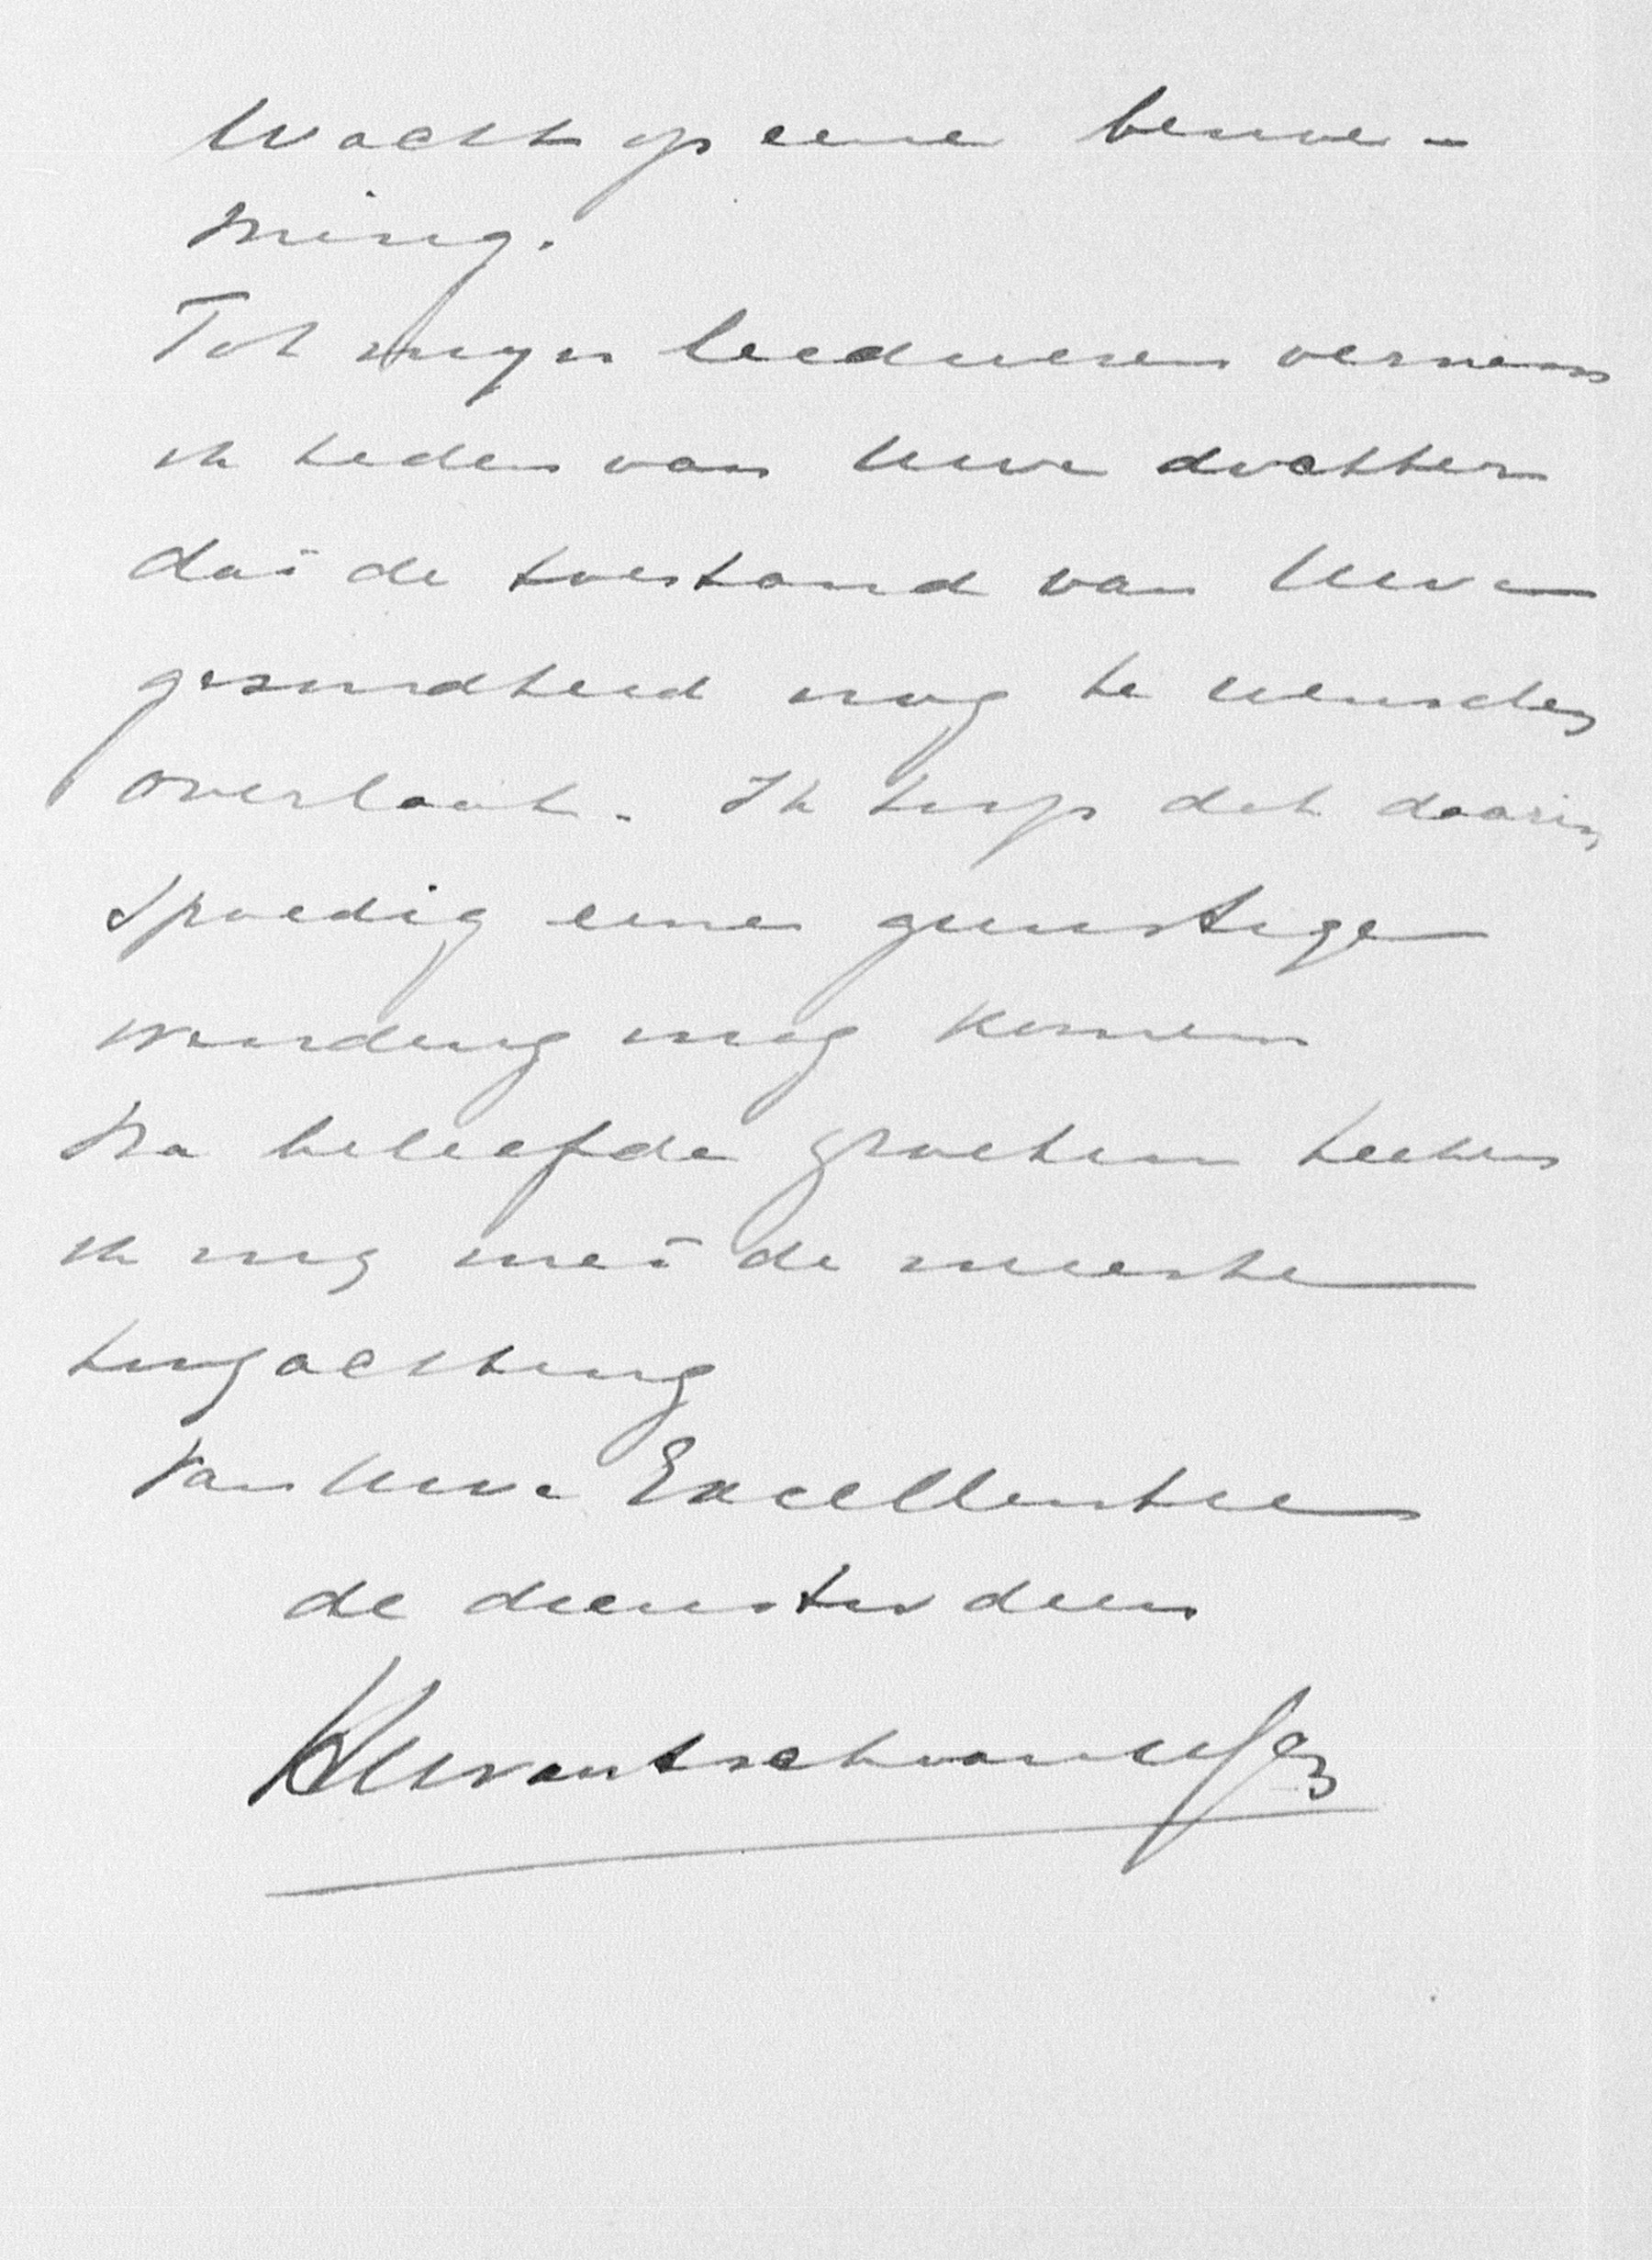 wacht op eene benoe-
ming.
Tot mijn leedwezen vernam
ik heden van Uwe dochter
dat de toestand van Uwe
gezondheid nog te wenschen
overlaat. Ik hoop dat daarin
spoedig eene gunstige
wending mag komen
Na beleefde groeten teeken
ik mij met de meeste
hoogachting
Van Uwe Excellentie
de dienstw dien